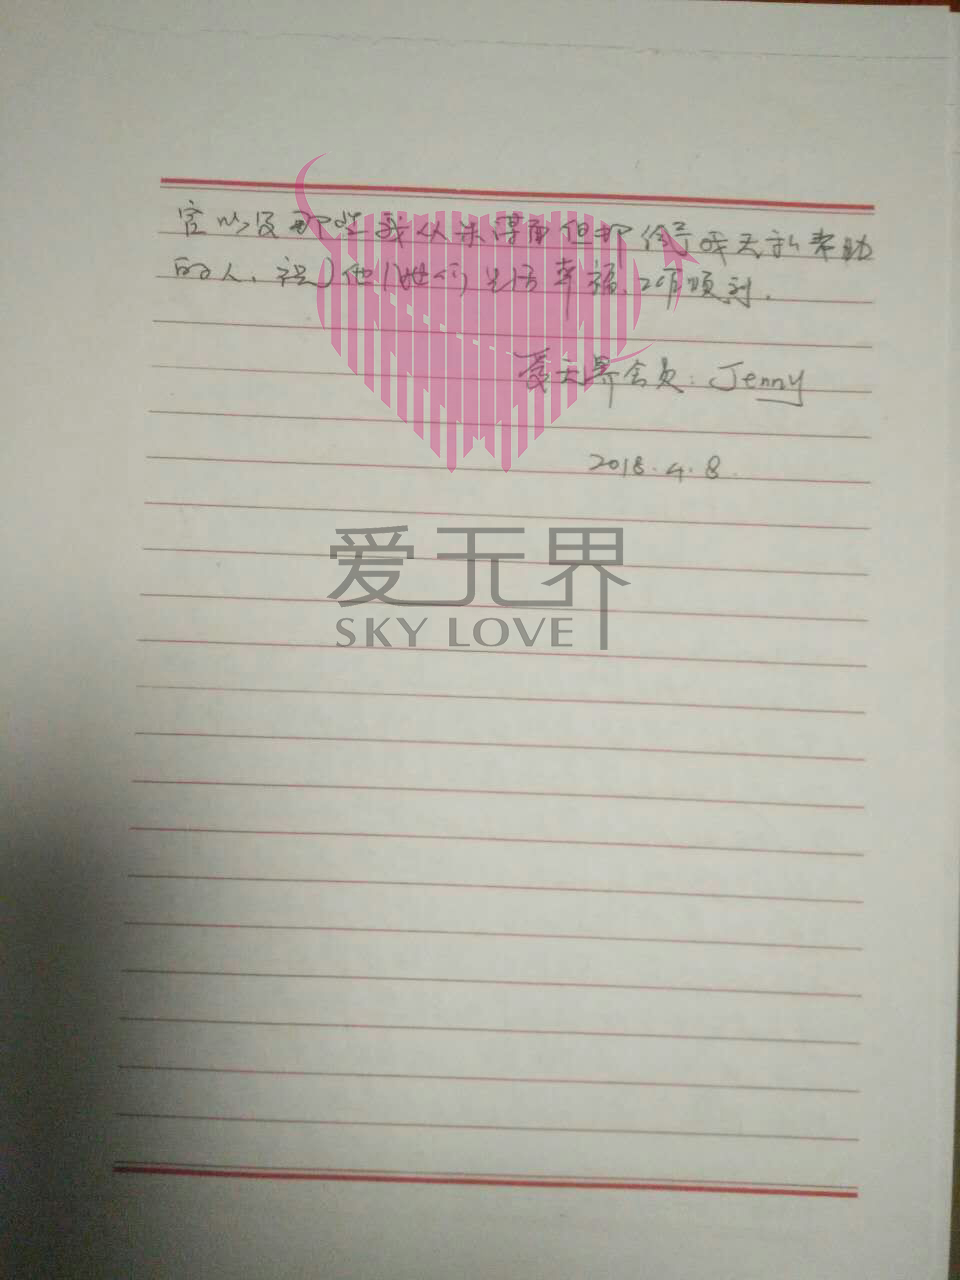 官以及那些我从未谋面但却给予我无私帮助
的人,祝他(她们)生活幸福,工作顺利.
爱无界会员:Jenny
2018.4.8.
爱无界
SKY LOVE